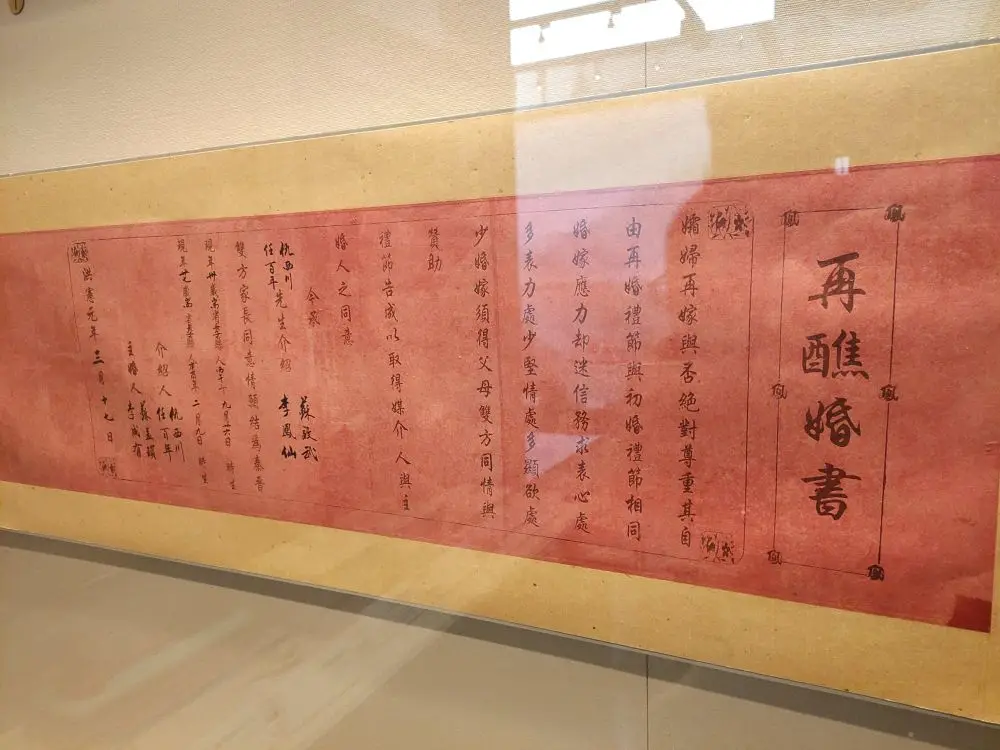 再醮婚書
孀婦再嫁與否絕對尊重其自
由再婚禮節與初婚禮節相同
婚嫁應力却迷信務求表心處
多表力處少堅情處多顯欲處
少婚嫁須得父母雙方同情與
贊助
禮節告成以取得媒介人與主
婚人之同意
今承
仇西川
任百年
先生介紹
蘇致武
李鳳仙
雙方家長同意情願結為秦晉
現年卅歲
人
九月廿六日
時生
現年
歲
人
年二月九日
時生
介紹人
仇西川
任百年
主婚人
李成有
洪憲元年三月十七日